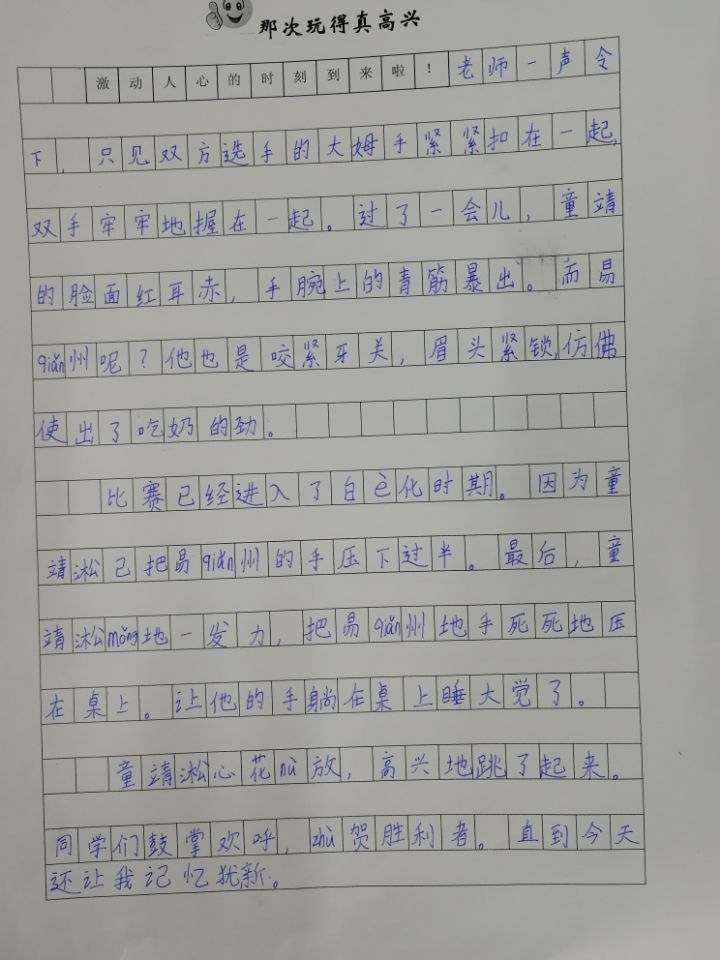 那次玩得真高兴
激动人心的时刻到来啦！老师一声令
下，只见双方选手的大姆手紧紧扣在一起，
双手牢牢地握在一起。过了一会儿，童靖
的脸面红耳赤，手腕上的青筋暴出。而易
qiǎn州呢？他也是咬紧牙关，眉头紧锁，仿佛
使出了吃奶的劲。
比赛已经进入了白它化时期。因为童
靖淞已把易qiǎn州的手压下过半。最后，童
靖淞měng地一发力，把易qiǎn州地手死死地压
在桌上。让他的手躺在桌上睡大觉了。
童靖淞心花nù放，高兴地跳了起来。
同学们鼓掌欢呼，zhù贺胜利者。直到今天
还让我记忆犹新。